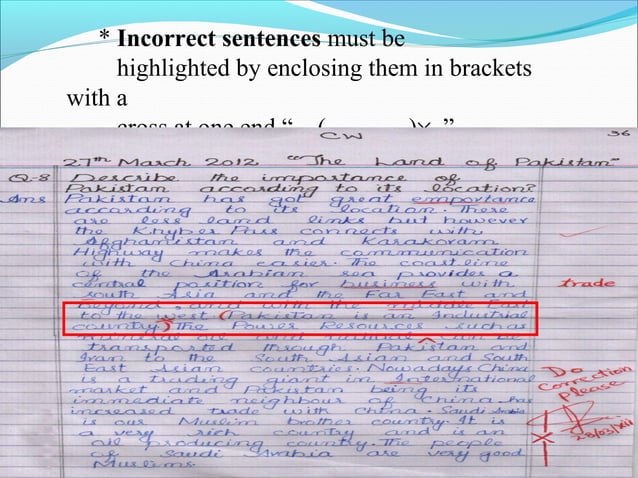 * Incorrect sentences must be
highlighted by enclosing them in brackets
with a
cross at one end “ (            )× ”
CW 36
27th March 2012 "The Land of Pakistan"
Q-8 Describe the importance of
Pakistan according to its location?
Ans Pakistan has got great emportance
according to its location. There
are less land links but however
the Khyber Pass connects with
Afghanistan and Karakoram
Highway makes the communication
with China easier. The coast line
of the Arabian sea provides a
central position for business with trade
south Asia and the Far East and
beyond, and with the East
to the west. (Pakistan is an Industrial
country) The Power Resources such as
mineral oil and can be
transported through Pakistan and
Iran to the South Asian and South
East Asian countries. Nowadays China
is a trading giant in International
market and Pakistan being its
immediate neighbour of China has
increased trade with China. Saudi Arabia
is our Muslim brother country. It is
a very rich country and is an
oil producing country. The people
of Saudi Arabia are very good
Muslims.
Do
correction
please
28/03/12